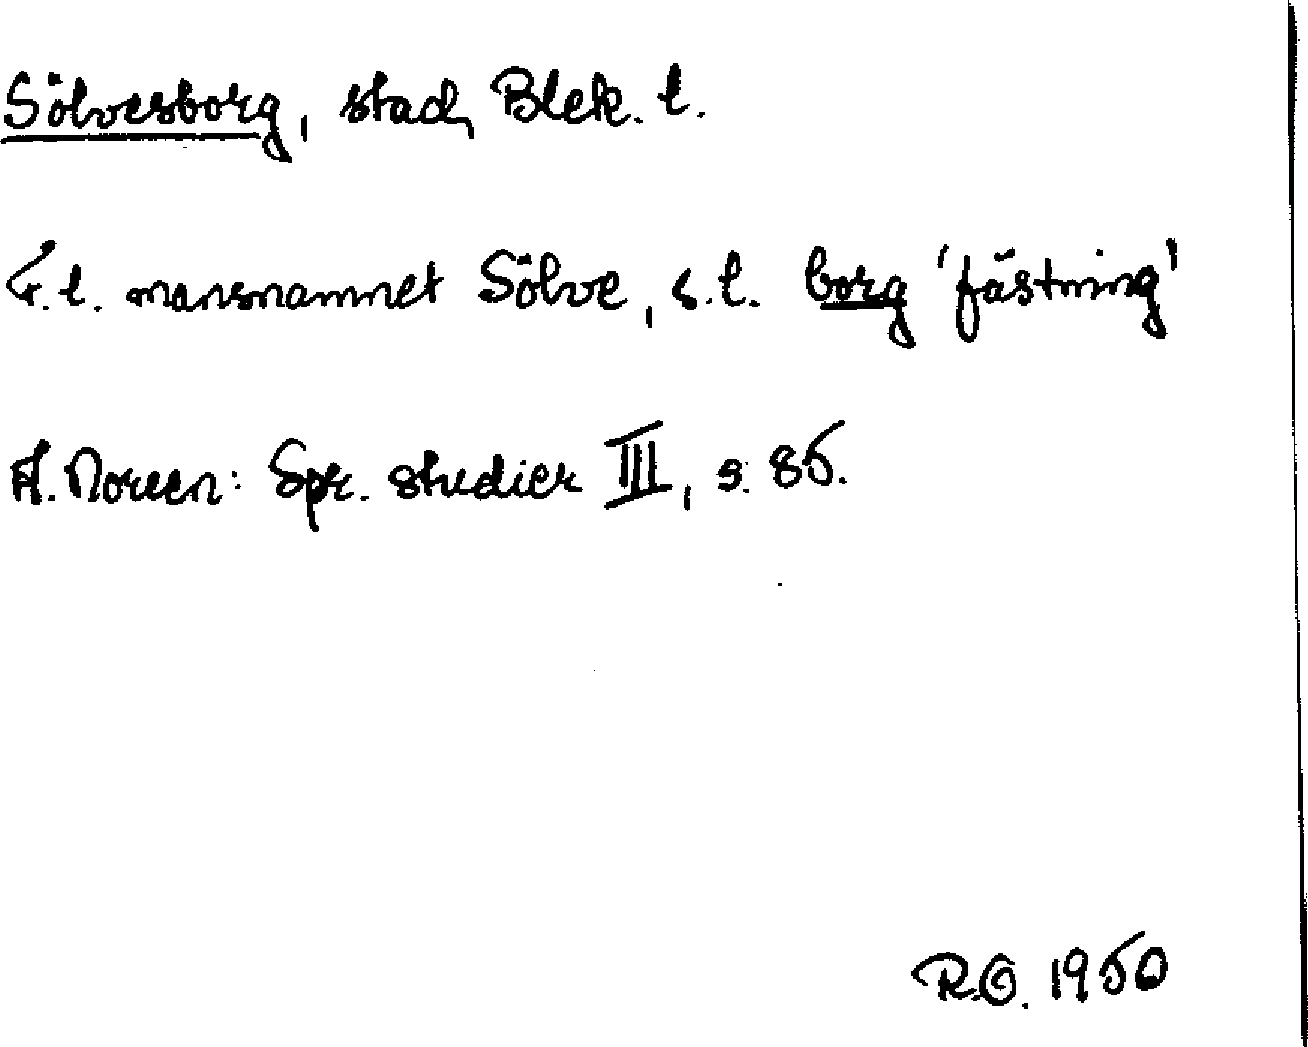 Sölvesborg, stad, Blek. l.
F.l. mansnamnet Sölve, s.l. borg 'fästning'
A. Noreen: Spr. studier III, s. 85.
R.O. 1950